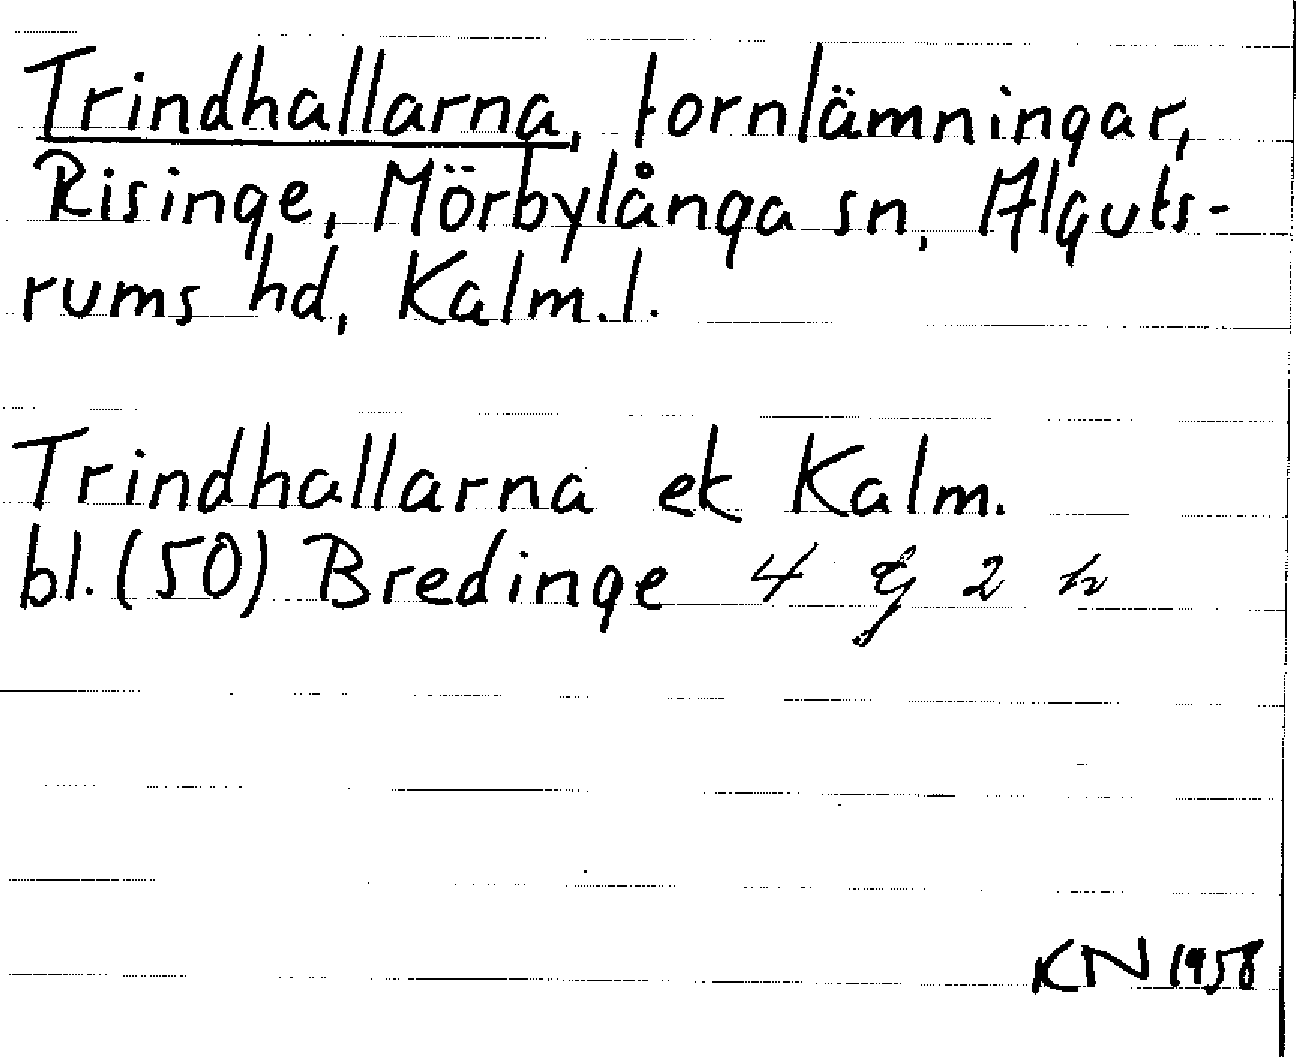 Trindhallarna, fornlämningar,
Risinge, Mörbylånga sn, Alguts-
rums hd, Kalm.l.
Trindhallarna ek Kalm.
bl. (50) Bredinge 4 2 h
KN 1958